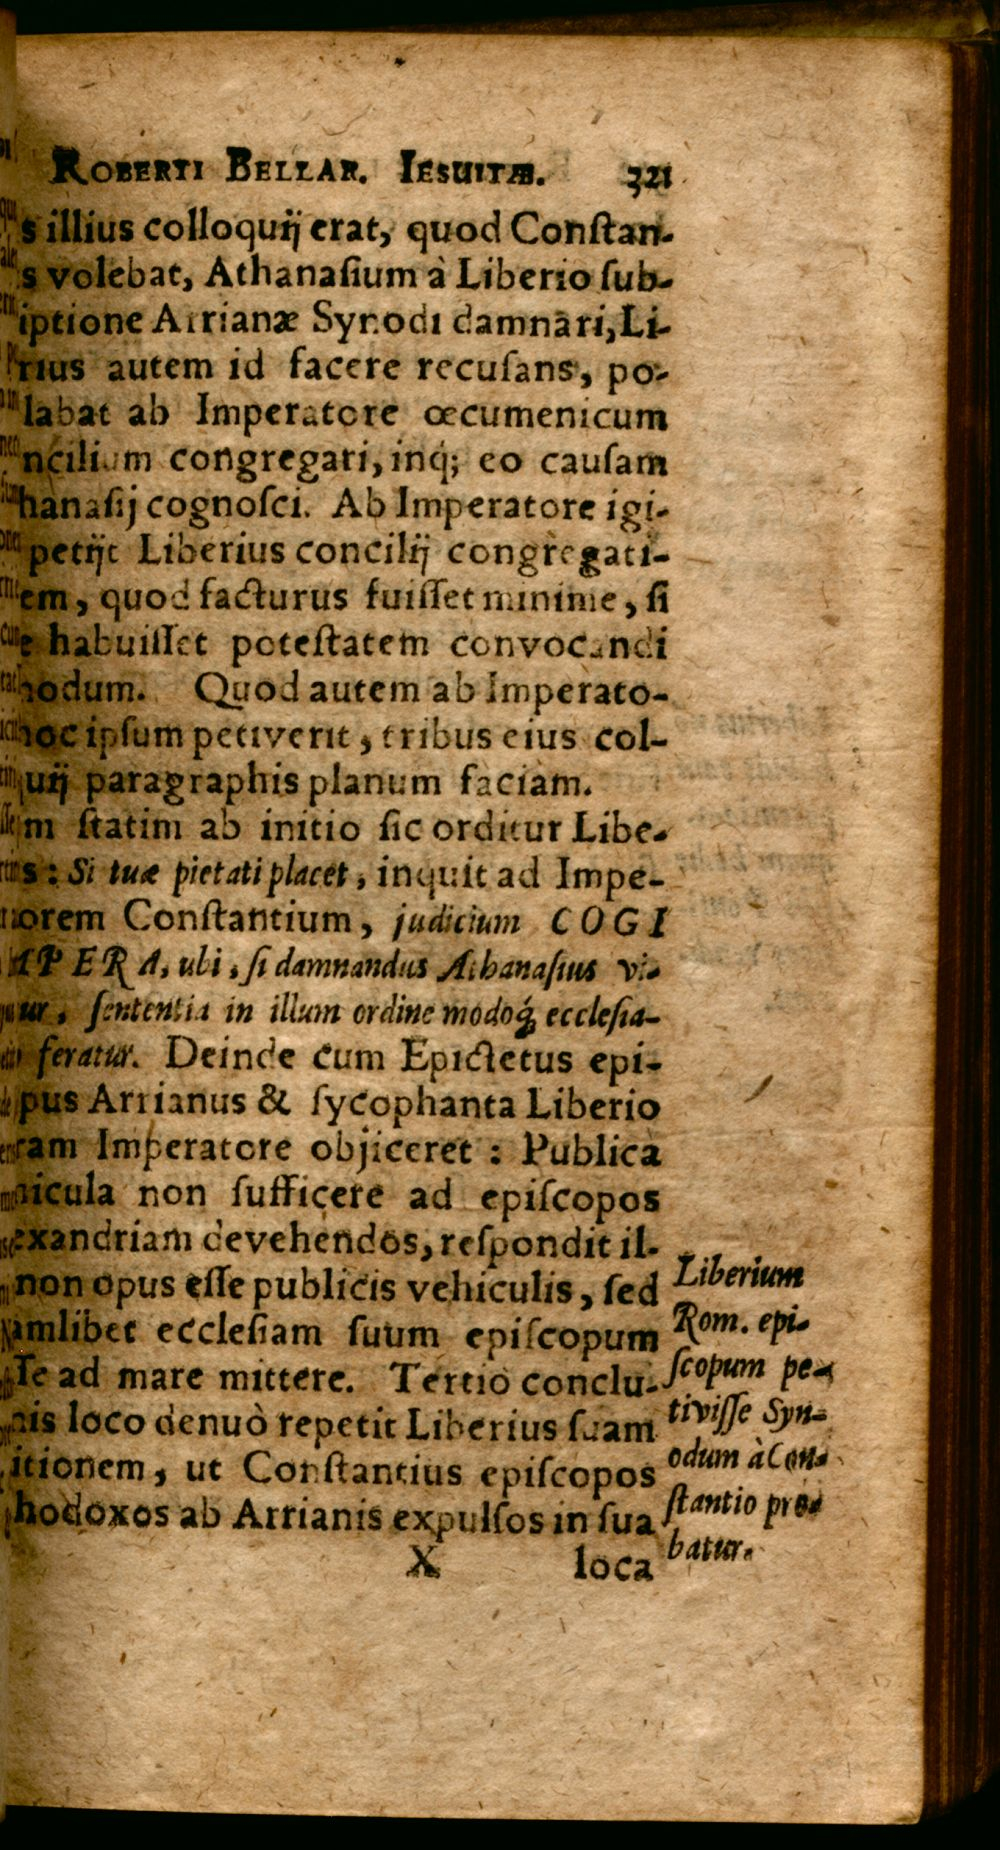 ROBERTI BELLAR. IESUITÆ. 321
s illius colloquij erat, quod Conſtan-
s volebat, Athanaſium à Liberio ſub-
iptione Arrianæ Synodi damnari, Li-
rius autem id facere recuſans, po-
labat ab Imperatore œcumenicum
ncilium congregari, inq́; eo cauſam
hanaſij cognoſci. Ab Imperatore igi-
petijt Liberius concilij congregati-
em, quod facturus fuiſſet minime, ſi
e habuiſſet poteſtatem convocandi
nodum. Quod autem ab Imperato-
hoc ipſum petiverit, tribus eius col-
quij paragraphis planum faciam.
m ſtatim ab initio ſic orditur Libe-
s: Si tuæ pietati placet, inquit ad Impe-
orem Conſtantium, judicium COGI
APERA, ubi, ſi damnandus Athanaſius vi-
ur, ſententia in illum ordine modoq́; eccleſia-
feratur. Deinde cum Epictetus epi-
pus Arrianus & ſycophanta Liberio
ram Imperatore objiceret: Publica
hicula non ſufficere ad epiſcopos
exandriam devehendos, reſpondit il-
non opus eſſe publicis vehiculis, ſed
amlibet eccleſiam ſuum epiſcopum
ſe ad mare mittere. Tertiò conclu-
nis loco denuò repetit Liberius ſuam
itionem, ut Conſtantius epiſcopos
hodoxos ab Arrianis expulſos in ſua
X loca
Liberium
Rom. epi-
ſcopum pe-
tiviſſe Syn-
odum à Con-
ſtantio pro-
batur.